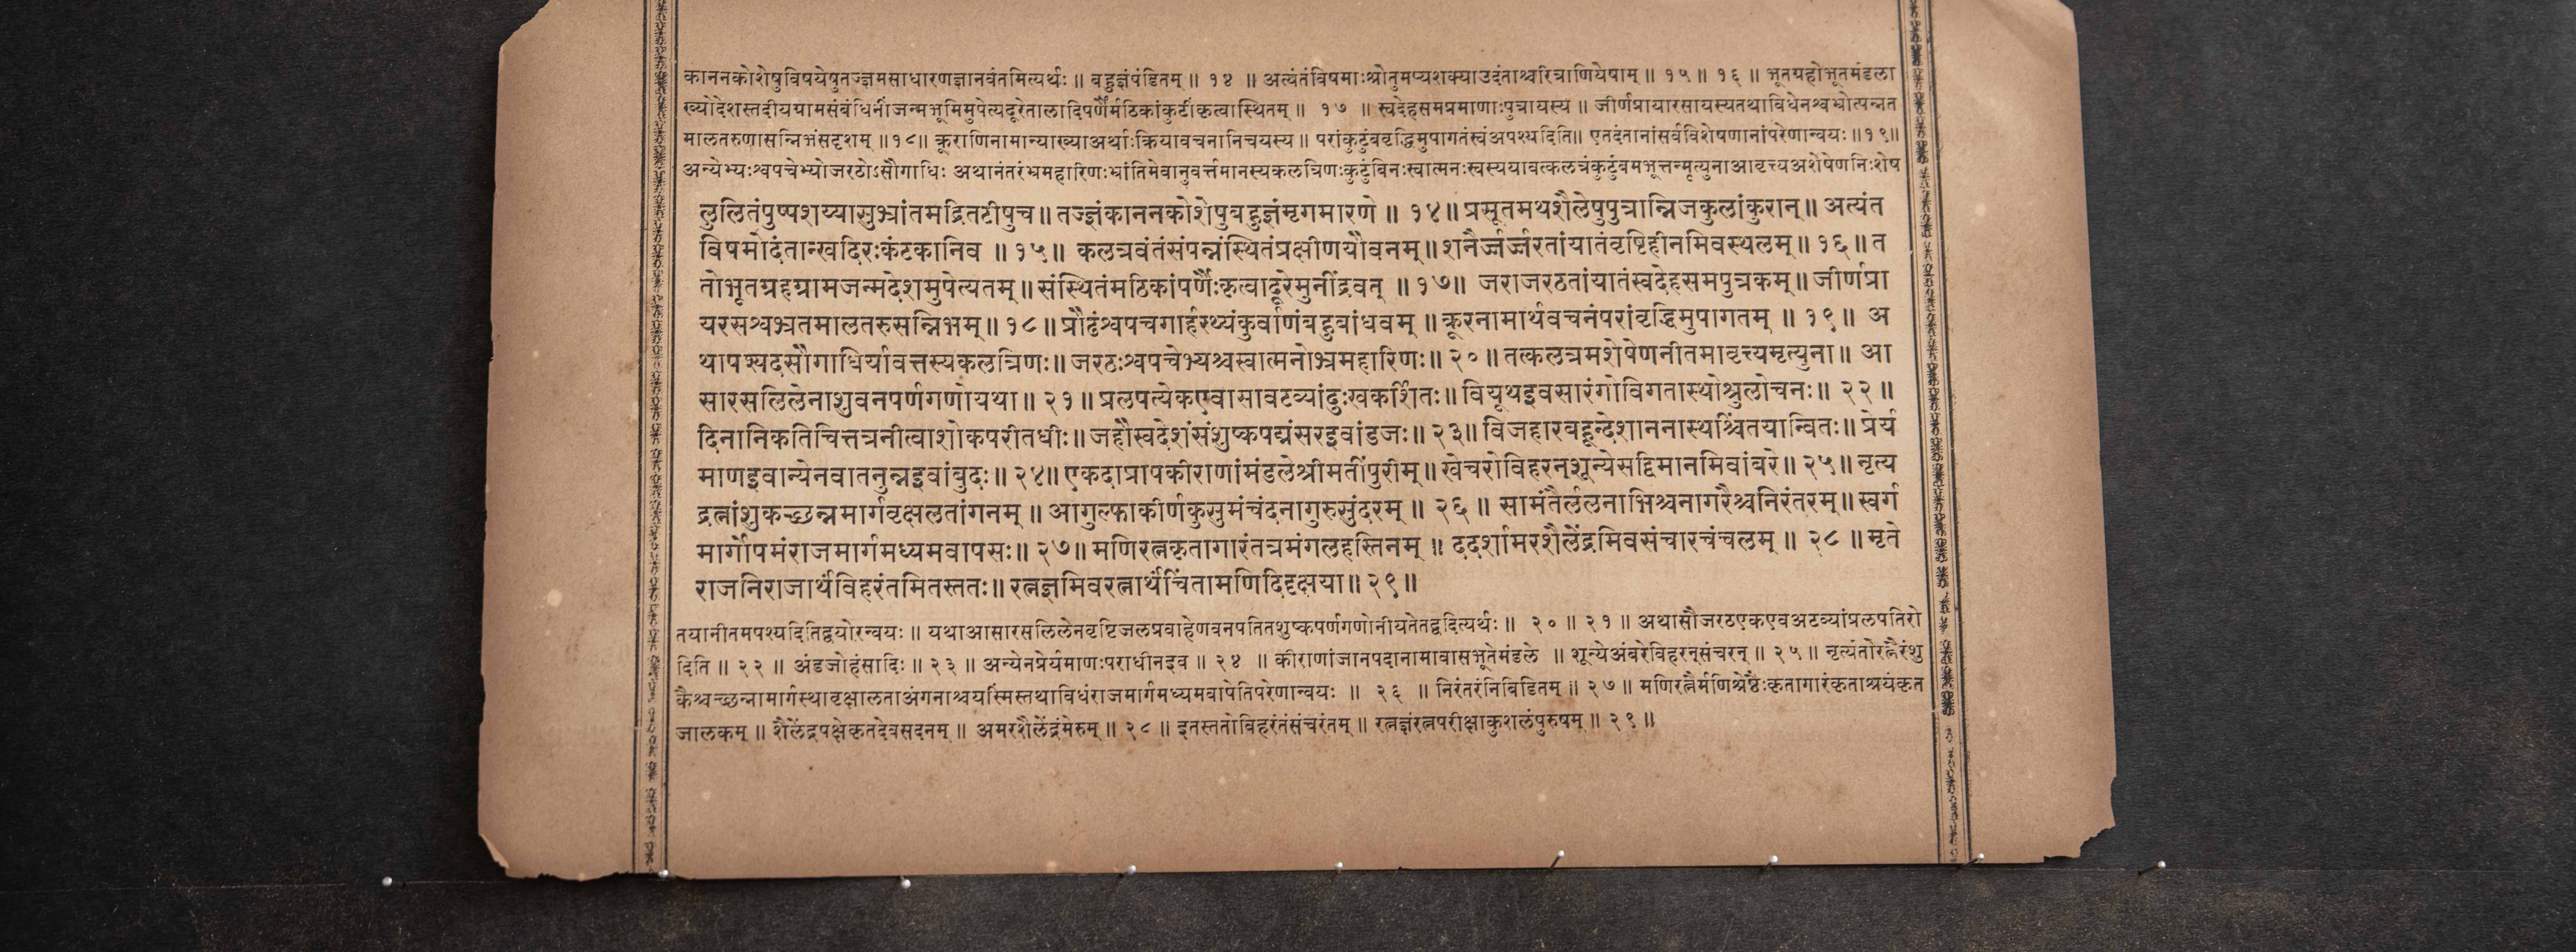 काननकोशेषुविषयेषुतज्ज्ञमसाधारणज्ञानवंतमित्यर्थः ॥ बहुज्ञंपंडितम् ॥ १४ ॥ अत्यंतंविषमाःश्रोतुमप्यशक्याउदंताश्चरित्राणियेषाम् ॥ १५ ॥ १६ ॥ भूतग्रहोभूतमंडला
ख्योदेशस्तदीयग्रामसंबंधिनींजन्मभूमिमुपेत्यदूरेतालादिपर्णैर्मठिकांकुटींकृत्वास्थितम् ॥ १७ ॥ स्वदेहसमप्रमाणाःपुत्रायस्य ॥ जीर्णप्रायारसायस्यतथाविधेनश्वभ्रोत्पन्नत
मालतरुणासन्निभंसदृशम् ॥१८॥ क्रूराणिनामान्याख्याअर्थाःक्रियावचनानिचयस्य ॥ परांकुटुंबवृद्धिमुपागतंस्वंअपश्यदिति॥ एतदंतानांसर्वविशेषणानांपरेणान्वयः ॥१९॥
अन्येभ्यःश्वपचेभ्योजरठोऽसौगाधिः अथानंतरंभ्रमहारिणःभ्रांतिमेवानुवर्त्तमानस्यकलत्रिणःकुटुंबिनःस्वात्मनःस्वस्ययावत्कलत्रंकुटुंबमभूत्तन्मृत्युनाआवृत्त्यअशेषेणनिःशेष
लुलितंपुष्पशय्यासुभ्रांतमद्रितटीषुच॥ तज्ज्ञंकाननकोशेषुबहुज्ञंमृगमारणे ॥ १४॥ प्रसूतमथशैलेषुपुत्रान्निजकुलांकुरान्॥ अत्यंत
विषमोदंतान्खदिरःकंटकानिव ॥ १५॥ कलत्रवंतंसंपन्नंस्थितंप्रक्षीणयौवनम्॥ शनैर्ज्जर्ज्जरतांयातंवृष्टिहीनमिवस्थलम्॥ १६॥ त
तोभूतग्रहग्रामजन्मदेशमुपेत्यतम्॥ संस्थितंमठिकांपर्णैःकृत्वादूरेमुनींद्रवत् ॥ १७॥ जराजरठतांयातंस्वदेहसमपुत्रकम्॥ जीर्णप्रा
यरसश्वभ्रतमालतरुसन्निभम्॥ १८॥ प्रौढंश्वपचगार्हस्थ्यंकुर्वाणंबहुबांधवम् ॥ क्रूरनामार्थवचनंपरांवृद्धिमुपागतम् ॥ १९॥ अ
थापश्यदसौगाधिर्यावत्तस्यकलत्रिणः॥ जरठःश्वपचेभ्यश्चस्वात्मनोभ्रमहारिणः॥ २०॥ तत्कलत्रमशेषेणनीतमावृत्त्यमृत्युना॥ आ
सारसलिलेनाशुवनपर्णगणोयथा॥ २१॥ प्रलपत्येकएवासावटव्यांदुःखकर्शितः॥ वियूथइवसारंगोविगतास्थोश्रुलोचनः॥ २२॥
दिनानिकतिचित्तत्रनीत्वाशोकपरीतधीः॥ जहौस्वदेशंसंशुष्कपद्मंसरइवांडजः॥ २३॥ विजहारबहून्देशाननास्थश्चिंतयान्वितः॥ प्रेर्य
माणइवान्येनवातनुन्नइवांबुदः॥ २४॥ एकदाप्रापकीराणांमंडलेश्रीमतींपुरीम्॥ खेचरोविहरन्शून्येसद्विमानमिवांबरे॥ २५॥ नृत्य
द्रत्नांशुकच्छन्नमार्गवृक्षलतांगनम् ॥ आगुल्फाकीर्णकुसुमंचंदनागुरुसुंदरम् ॥ २६ ॥ सामंतैर्ललनाभिश्चनागरैश्चनिरंतरम्॥ स्वर्ग
मार्गोपमंराजमार्गमध्यमवापसः॥ २७॥ मणिरत्नकृतागारंतत्रमंगलहस्तिनम् ॥ ददर्शामरशैलेंद्रमिवसंचारचंचलम् ॥ २८ ॥ मृते
राजनिराजार्थंविहरंतमितस्ततः॥ रत्नज्ञमिवरत्नार्थंचिंतामणिदिदृक्षया॥ २९॥
तयानीतमपश्यदितिद्वयोरन्वयः ॥ यथाआसारसलिलेनवृष्टिजलप्रवाहेणवनपतितशुष्कपर्णगणोनीयतेतद्वदित्यर्थः ॥ २० ॥ २१ ॥ अथासौजरठएकएवअटव्यांप्रलपतिरो
दिति ॥ २२ ॥ अंडजोहंसादिः ॥ २३ ॥ अन्येनप्रेर्यमाणःपराधीनइव ॥ २४ ॥ कीराणांजानपदानामावासभूतेमंडले ॥ शून्येअंबरेविहरन्संचरन् ॥ २५ ॥ नृत्यतोरत्नैरंशु
कैश्चच्छन्नामार्गस्थावृक्षालताअंगनाश्चयस्मिंस्तथाविधंराजमार्गमध्यमवापेतिपरेणान्वयः ॥ २६ ॥ निरंतरंनिबिडितम् ॥ २७ ॥ मणिरत्नैर्मणिश्रेष्ठैःकृतागारंकृताश्रयंकृत
जालकम् ॥ शैलेंद्रपक्षेकृतदेवसदनम् ॥ अमरशैलेंद्रंमेरुम् ॥ २८ ॥ इतस्ततोविहरंतंसंचरंतम् ॥ रत्नज्ञंरत्नपरीक्षाकुशलंपुरुषम् ॥ २९ ॥